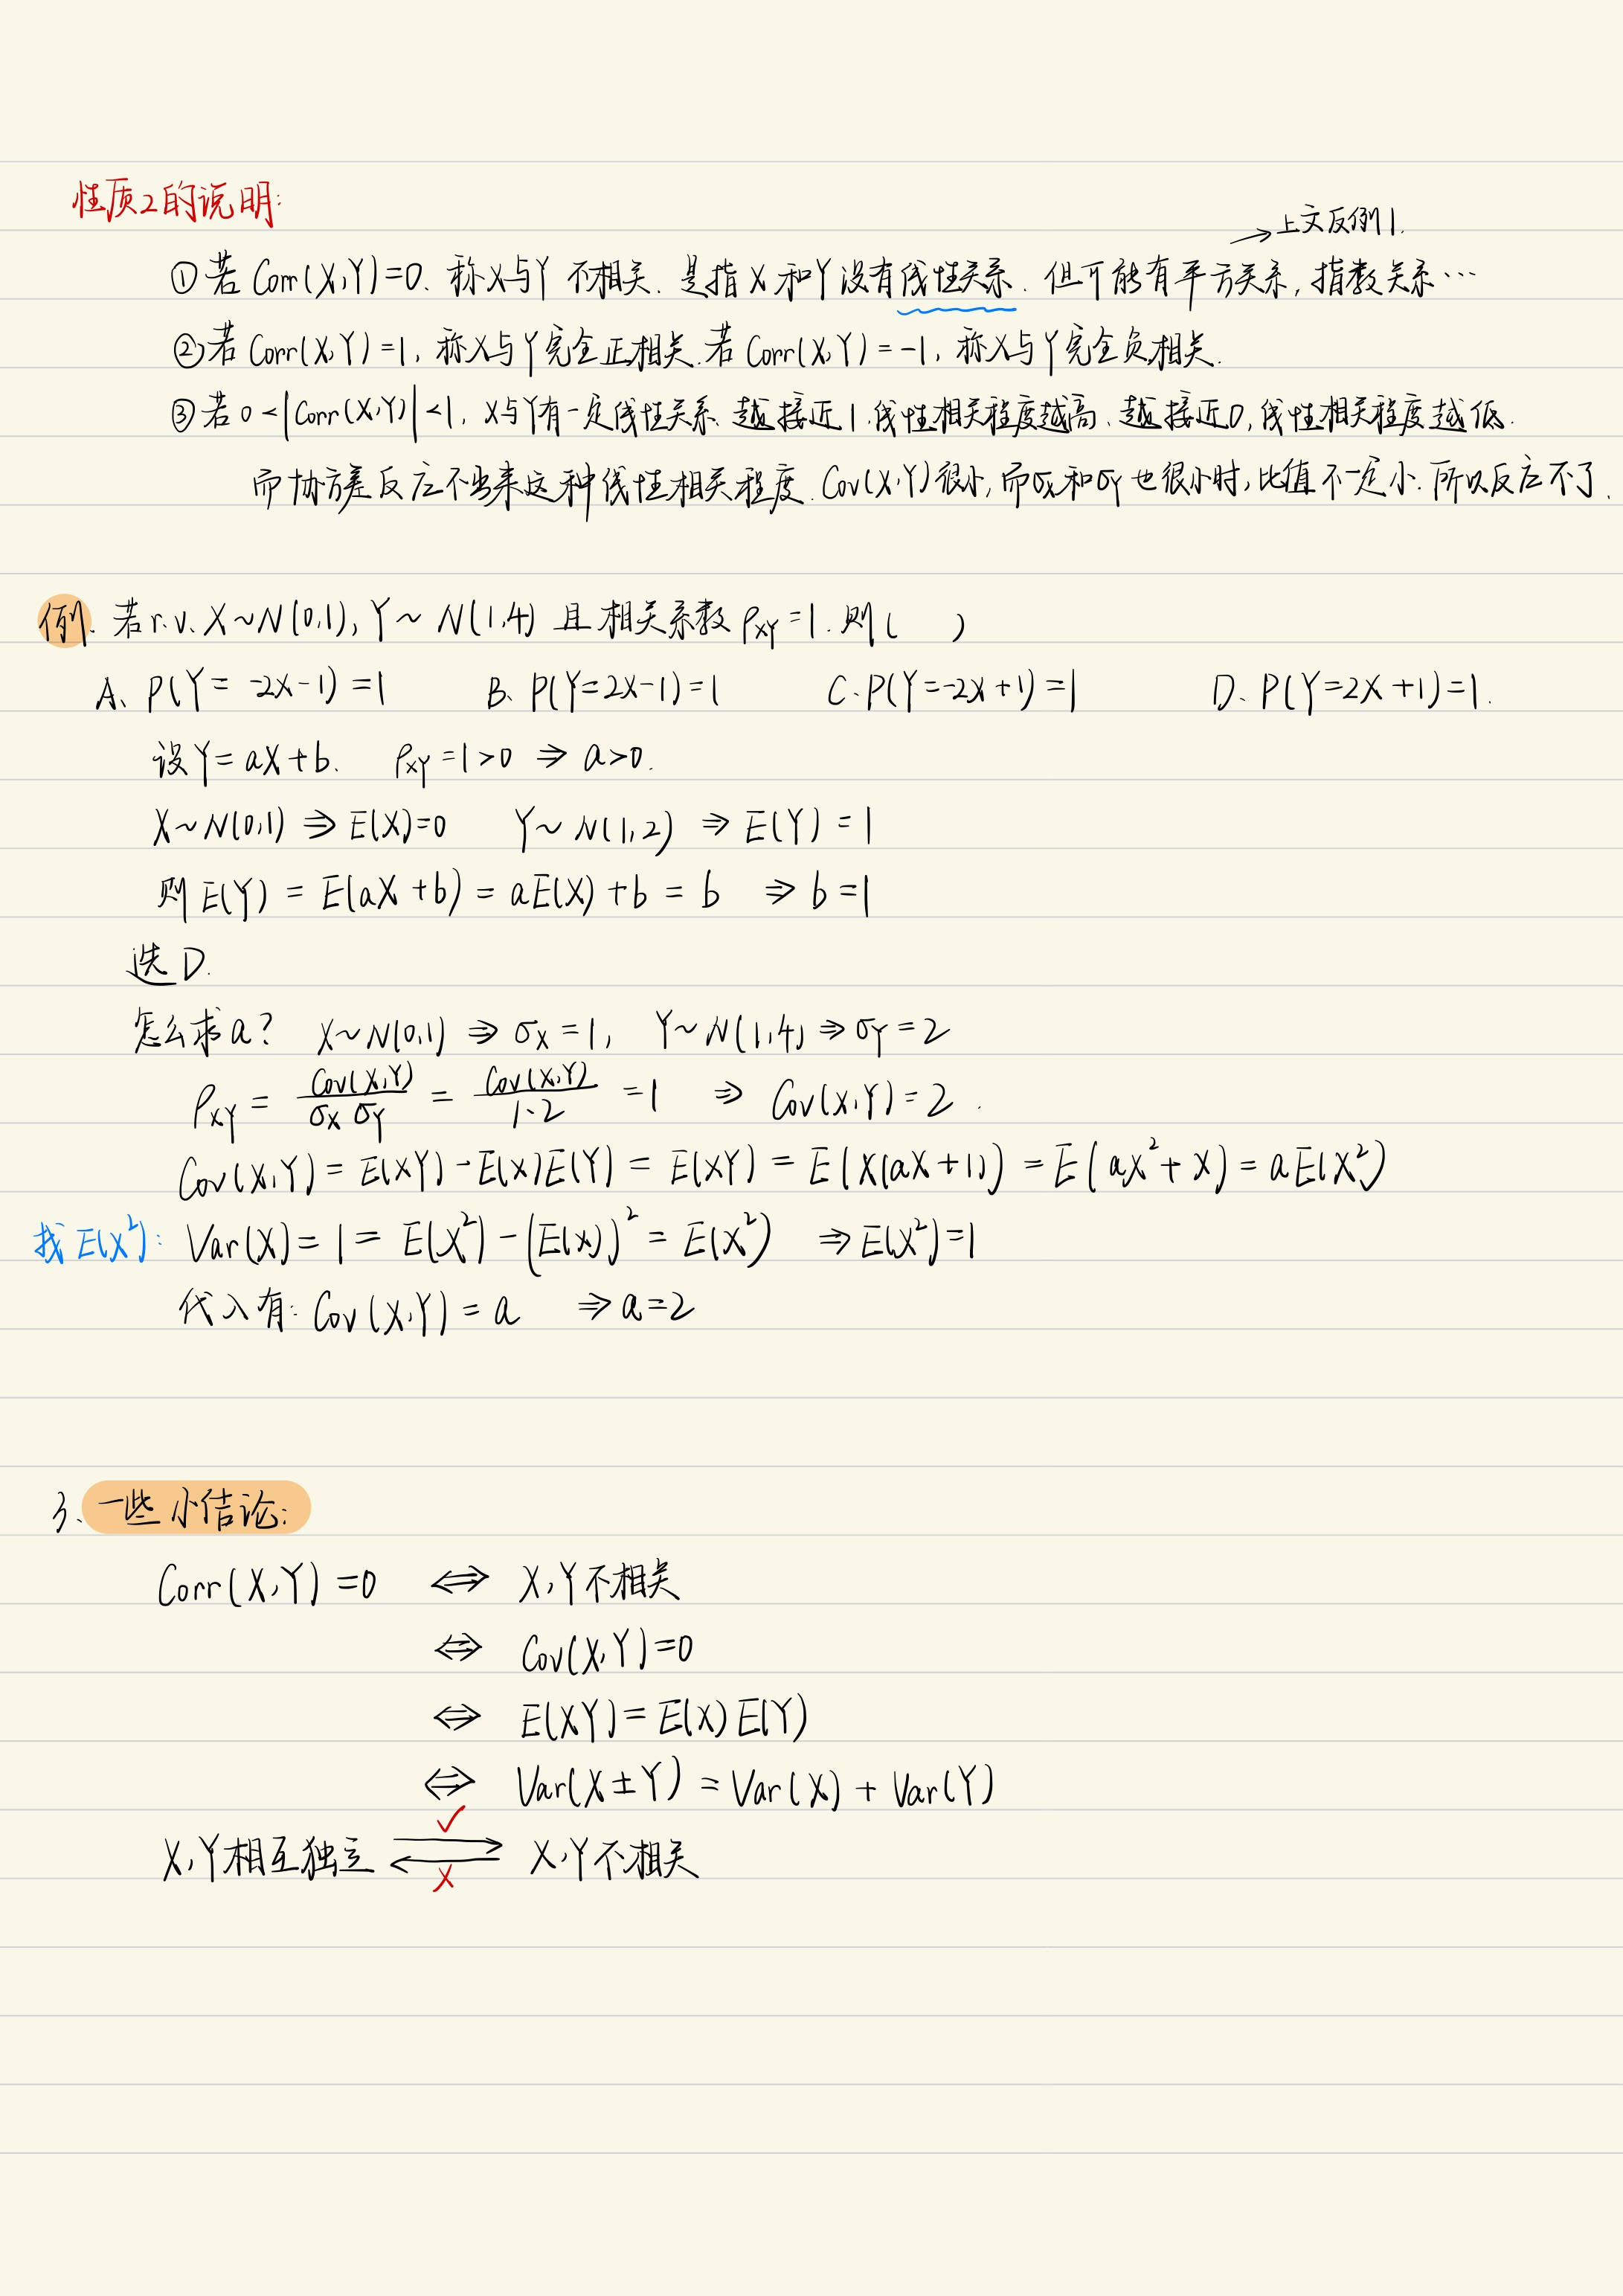 性质2的说明:
→上文反例1.
①若 Corr(X,Y)=0. 称X与Y 不相关. 是指 X 和Y 没有线性关系. 但可能有平方关系, 指数关系…
②若 Corr(X,Y)=1, 称X与Y完全正相关. 若 Corr(X,Y)=-1, 称X与Y完全负相关.
③若 0<|Corr(X,Y)|<1, X与Y有一定线性关系. 越接近1.线性相关程度越高、越接近0,线性相关程度越低.
而协方差反应不出来这种线性相关程度. Cov(X,Y)很小,而σx和σY也很小时,比值不一定小. 所以反应不了.
例. 若r.v. X~N(0,1), Y~N(1,4) 且相关系数 ρXY=1. 则( )
A、P(Y=-2X-1)=1 B、P(Y=2X-1)=1 C.P(Y=-2X+1)=1 D、P(Y=2X+1)=1.
设Y=aX+b. ρXY=1>0 ⇒ a>0.
X~N(0,1) ⇒ E(X)=0 Y~N(1,2) ⇒ E(Y)=1
则 E(Y) = E(aX+b) = aE(X)+b = b ⇒ b=1
选D.
怎么求a? X~N(0,1) ⇒ σX=1, Y~N(1,4) ⇒ σY=2
ρXY = Cov(X,Y)/σX σY = Cov(X,Y)/1·2 =1 ⇒ Cov(X,Y)=2.
Cov(X,Y) = E(XY)-E(X)E(Y) = E(XY) = E(X(aX+1)) = E(aX²+X) = aE(X²)
找E(X²): Var(X)=1= E(X²)-(E(X))² = E(X²) ⇒ E(X²)=1
代入有: Cov(X,Y) = a ⇒ a=2
3、一些小结论:
Corr(X,Y)=0 ⇔ X,Y不相关
⇔ Cov(X,Y)=0
⇔ E(XY)=E(X)E(Y)
⇔ Var(X±Y)=Var(X)+Var(Y)
✓
X,Y相互独立 ⇄ X,Y不相关
×